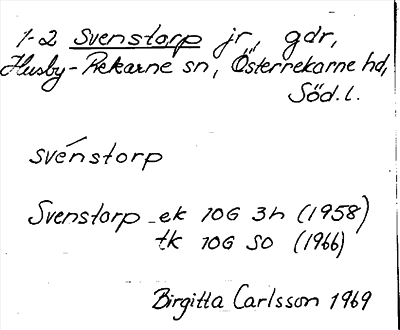 1-2 Svenstorp jr, gdr,
Husby-Rekarne sn, Österrekarne hd,
Söd.l.
svénstorp
Svenstorp ek 10G 3h (1958)
tk 10G SO (1966)
Birgitta Carlsson 1969